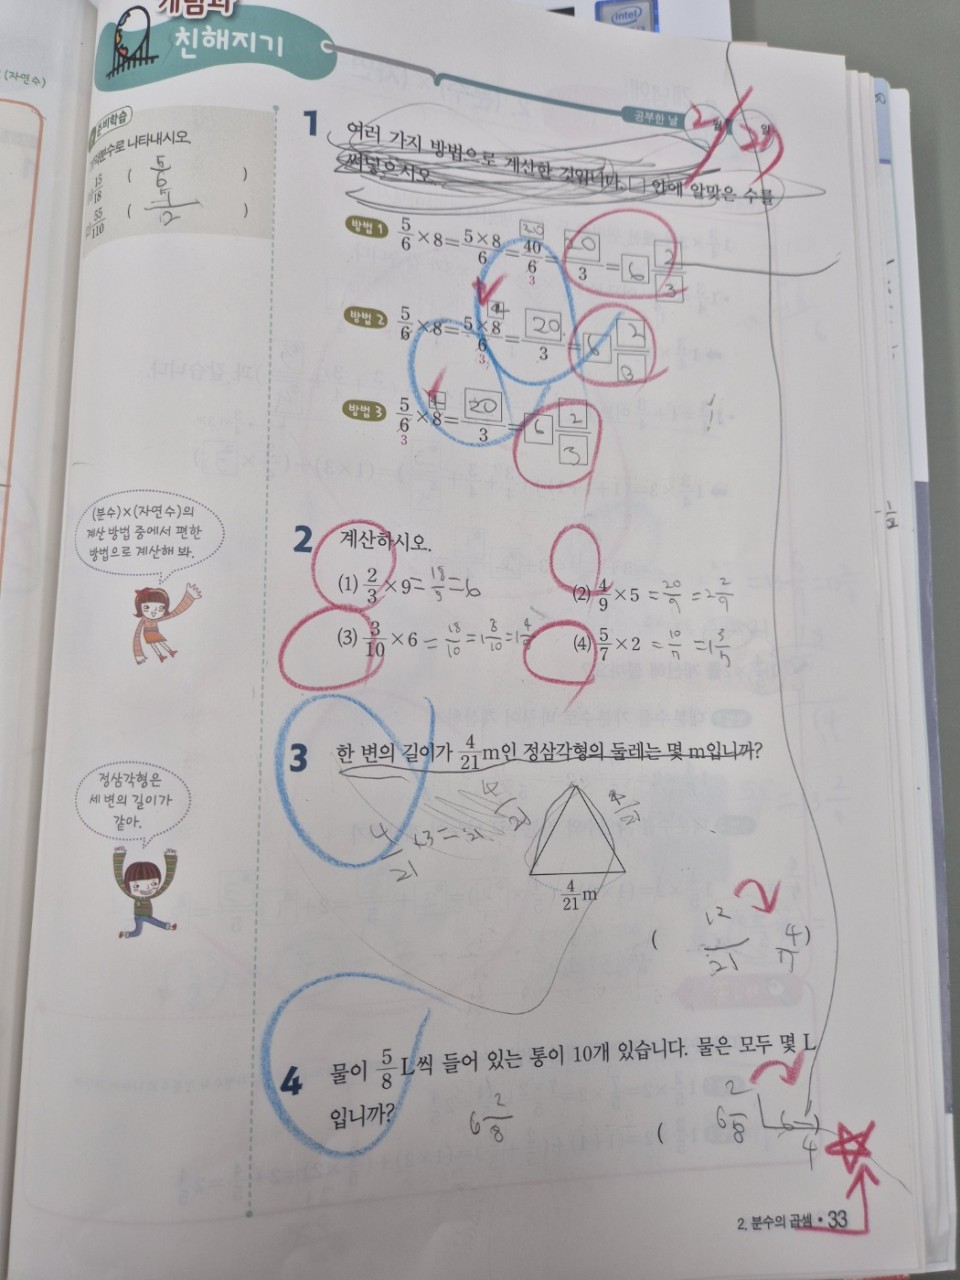 개념과
친해지기
intel
(자연수)
준비학습
분수로 나타내시오.
15/18 ( 5/6 )
55/110 ( )
공부한 날 2월 21일
1 여러 가지 방법으로 계산한 것입니다. □ 안에 알맞은 수를
써넣으시오.
방법 1 5/6 × 8 = 5×8/6 = 40/6 = 20/3 = 6 2/3
20
3
방법 2 5/6 × 8 = 5×8/6 = 20/3 = 6 2/3
4
3
방법 3 5/6 × 8 = 20/3 = 6 2/3
3
(분수)×(자연수)의
계산 방법 중에서 편한
방법으로 계산해 봐.
2 계산하시오.
(1) 2/3 × 9 = 18/3 = 6
(2) 4/9 × 5 = 20/9 = 2 2/9
(3) 3/10 × 6 = 18/10 = 1 8/10 = 1 4/5
(4) 5/7 × 2 = 10/7 = 1 3/7
3 한 변의 길이가 4/21 m인 정삼각형의 둘레는 몇 m입니까?
정삼각형은
세 변의 길이가
같아.
4/21
4/21
4/21 ×3 =
4/21 m
( 12/21 4/7 )
4 물이 5/8 L씩 들어 있는 통이 10개 있습니다. 물은 모두 몇 L
입니까?
6 2/8
( 6 2/8 6 1/4 )
2. 분수의 곱셈 • 33